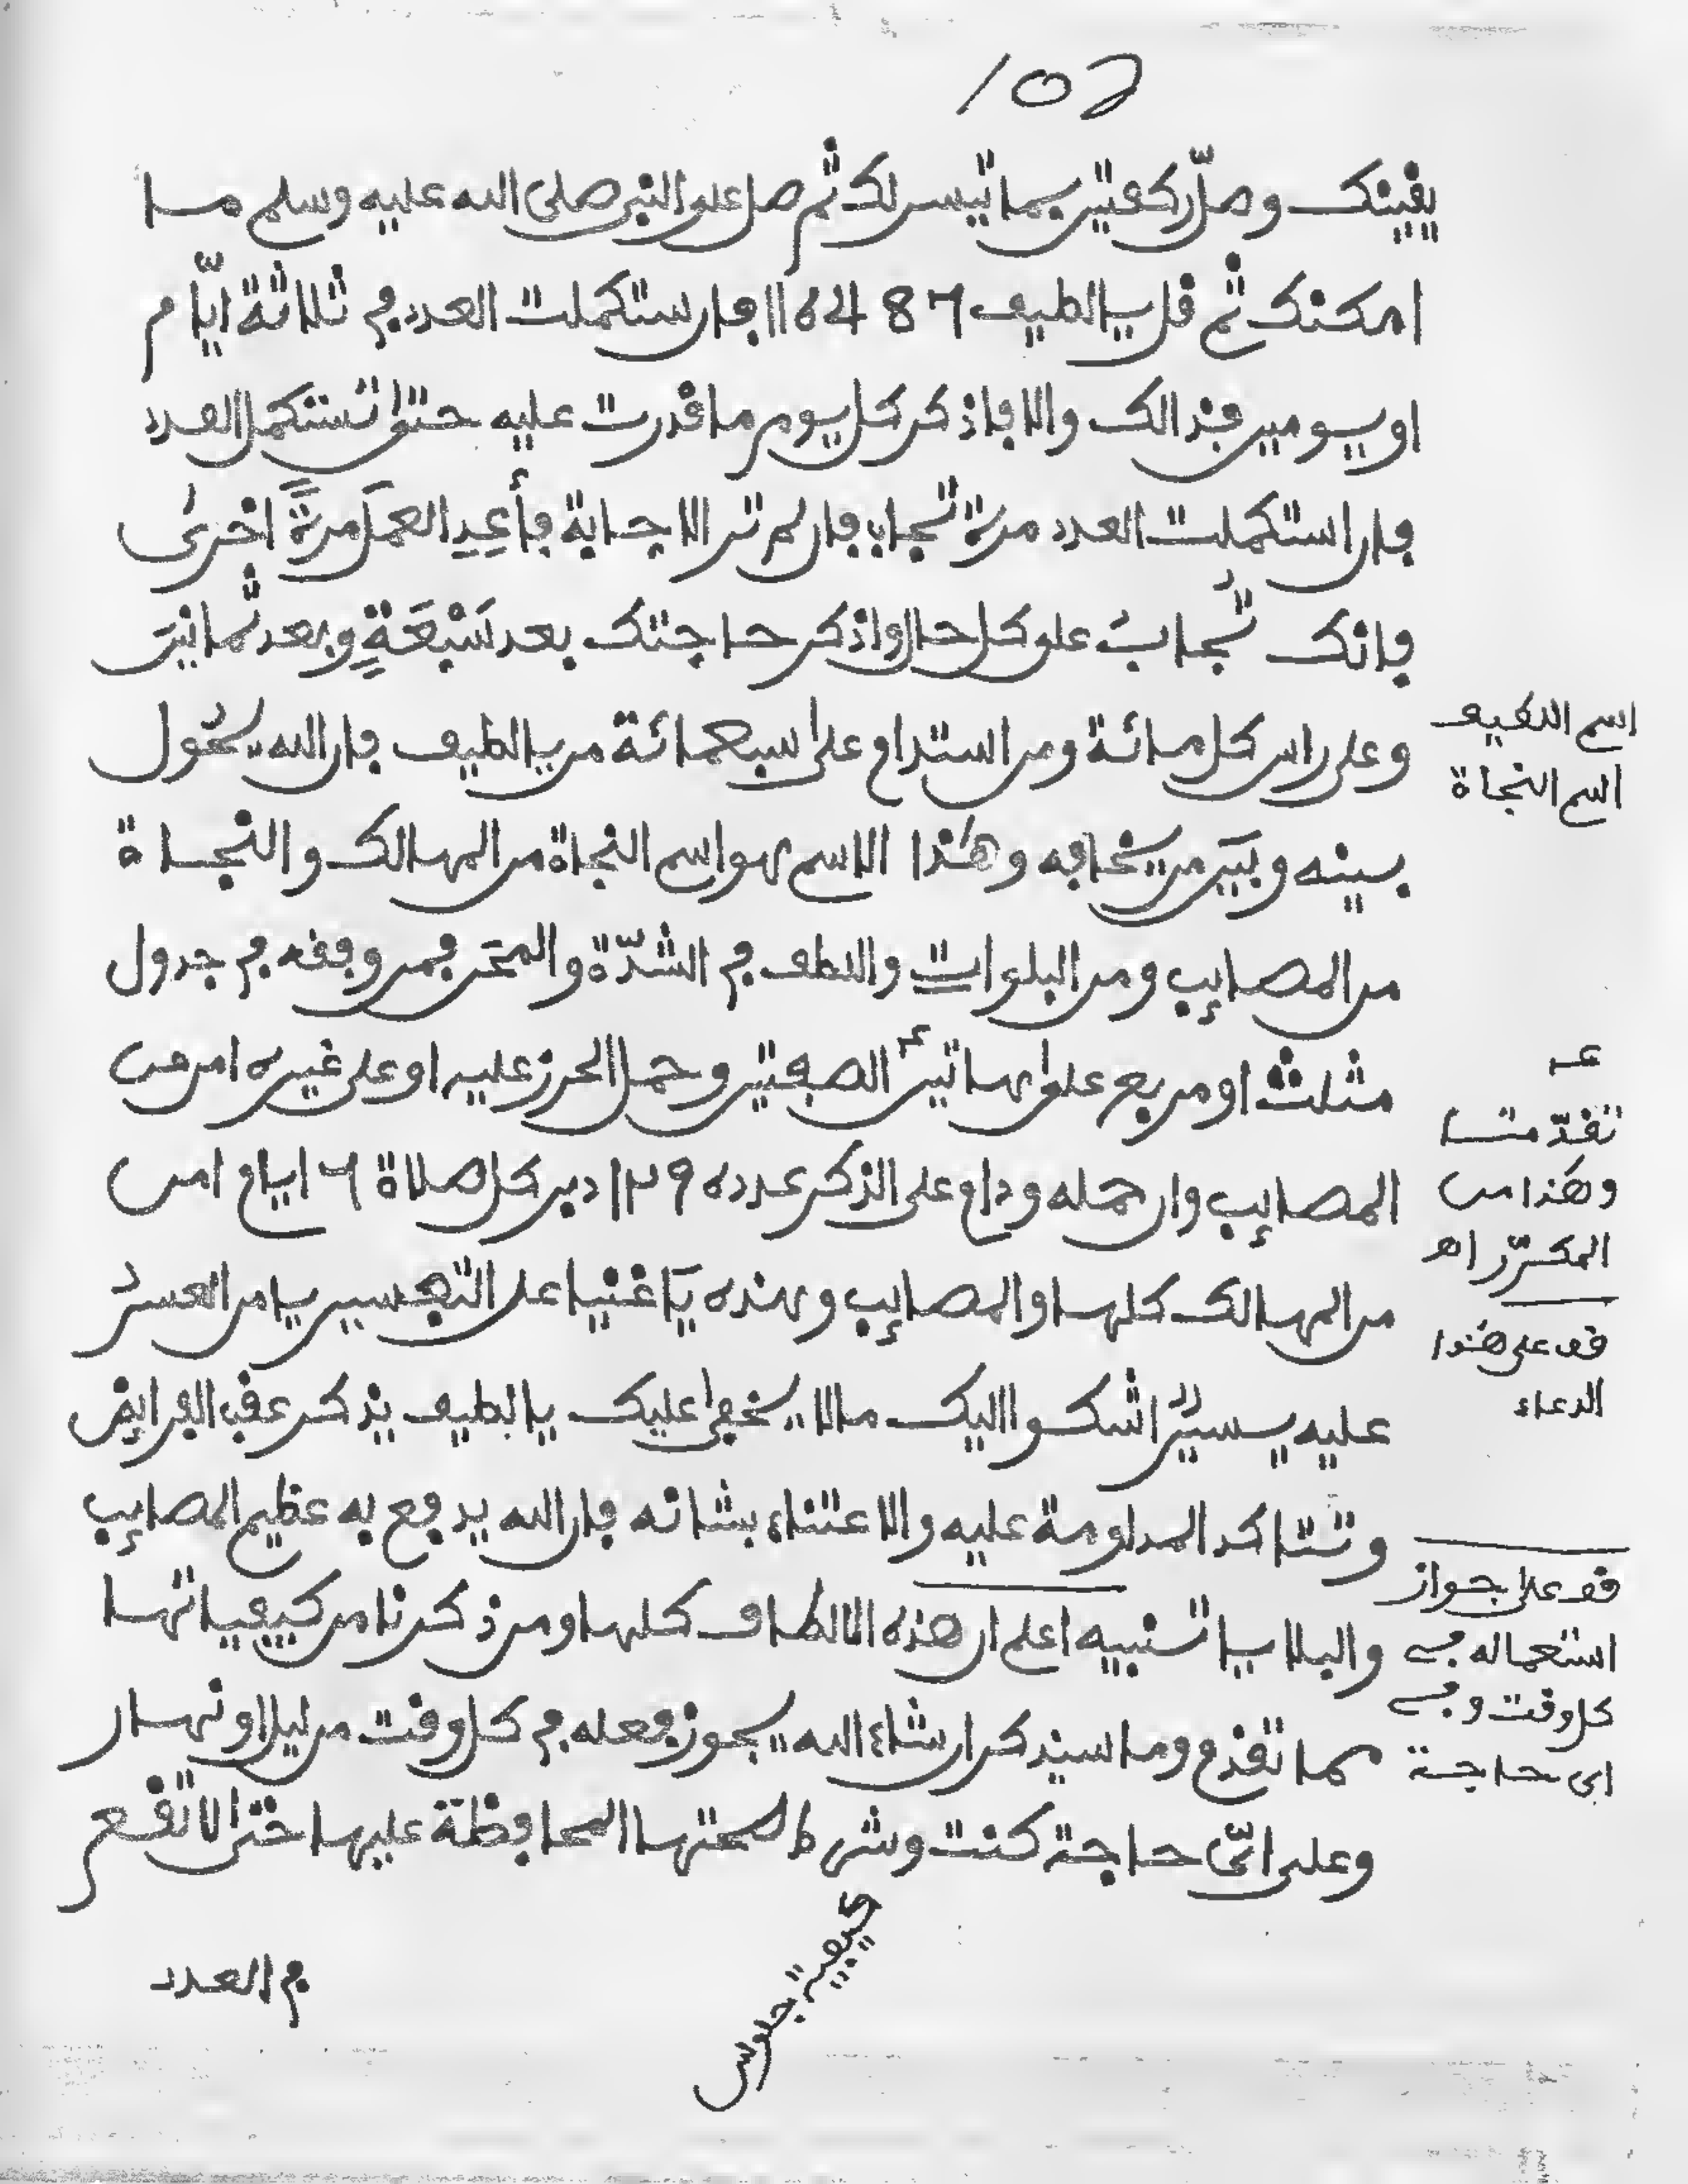 يقينك وصلّ ركعتين بما تيسر لك ثم صل على النبي صلى الله عليه وسلم ما
امكنك ثم قل يا لطيف فان ستكملت العدد في ثلاثة ايّام
او يومين فذالك والا فاذكر كل يوم ما قدرت عليه حتى تستكمل العدد
فان استكملت العدد مرة تجاب فان لم تر الاجابة فأَعِدِ العمَلَ مرةً اخرى
فانك تُجابُ على كل حال واذكر حاجتك بعد سَبْعَةٍ وبعد ثمانين
وعلى راس كل مائة ومن استدام على سبعمائة من يا لطيف فان الله يحُول
بينه وبَيْن من يخافه وهٰذا الاسم هو اسم النجاة من المهالك والنجاة
من المصايب ومن البلوات واللطف في الشدّة والمحَن فمن وفقه في جدول
مثلث او مربع على هاتين الصفتين وحمل الحرز عليه او على غيره امن من
المصايب وان حمله ودام على الذكر عدده ١٢٩ دبر كل صلاة ٦ ايام امن
من المهالك كلها والمصايب وهذه يَا غنيا على التفسير يا من العسرُ
عليه يسيرٌ اشكوا اليك ما لا يخفى عليك يا لطيف يذكر عقب الفرايض
وتتاكد المداومة عليه والاعتناء بشانه فان الله يدفع به عظيم المصايب
والبلايا تنبيه اعلم ان هذه الالطاف كلها ومن ذكرنا من كيفياتها
مما تقدم وما سيذكر ان شاء الله يجوز فعله في كل وقت من ليل او نهار
وعلى ايّ حاجة كنت وشرط لصحتها المحافظة عليها حتى لا تقع
في العدد
كيفية جلوس
اسم اللطيف
اسم النجاة
عـ
تقدّمتا
وهذا من
المكرّر اهـ
قف على هٰذا
الدعاء
قف على جواز
استعماله في
كل وقت وفي
اي حاجة